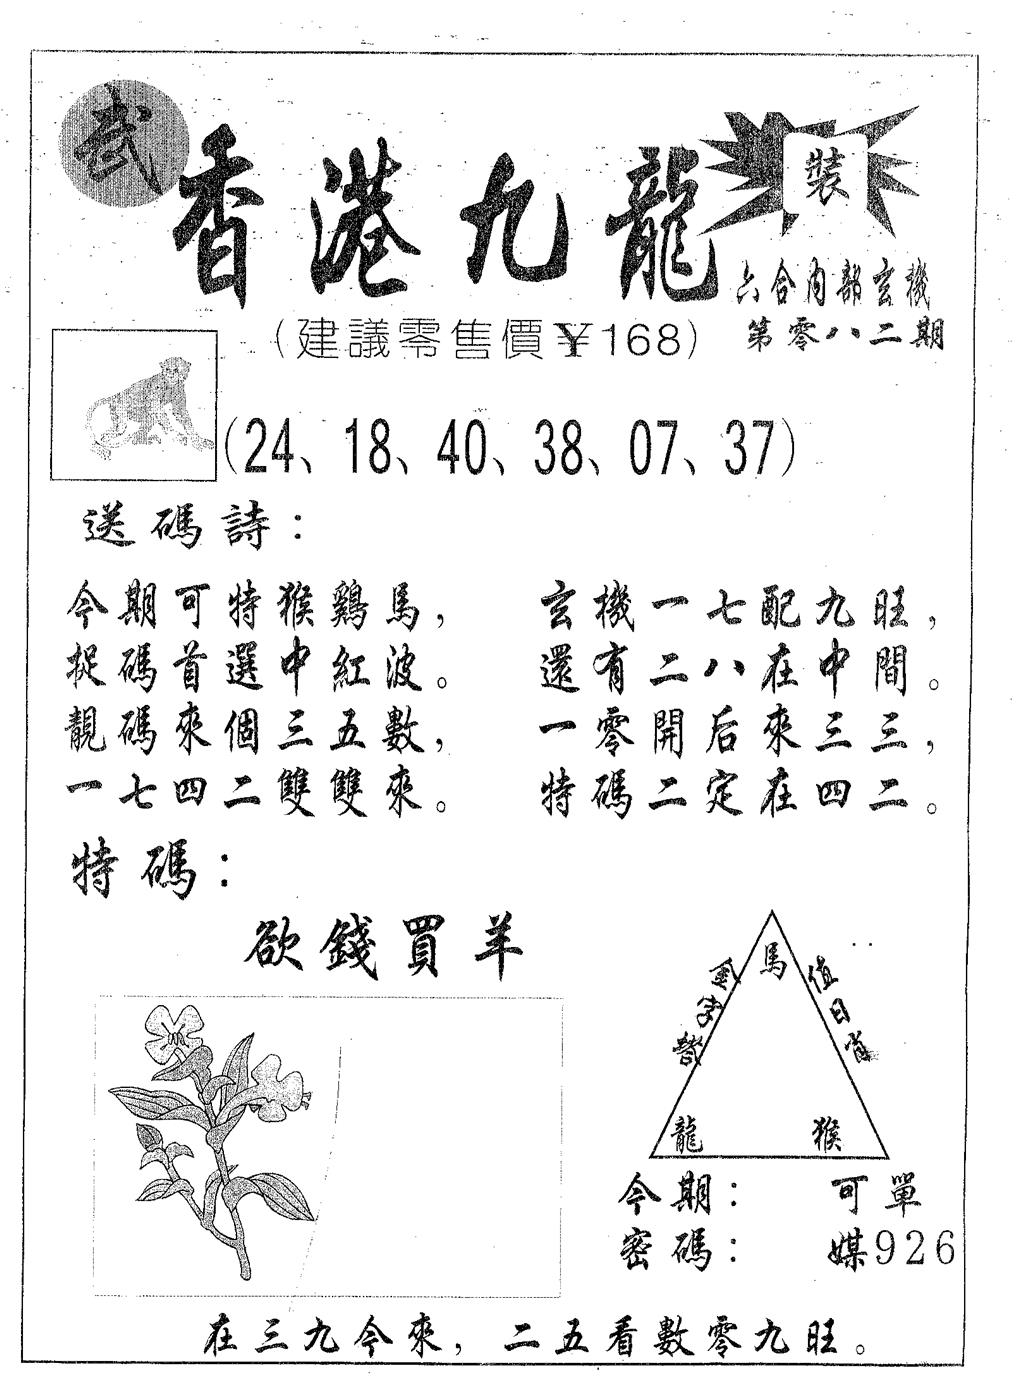 武
香港九龍
裝
六合内部玄機
第零八二期
(建議零售價¥168)
(24、18、40、38、07、37)
送碼詩：
今期可特猴鷄馬，
捉碼首選中紅波。
靚碼來個三五數，
一七四二雙雙來。
玄機一七配九旺，
還有二八在中間。
一零開后來三三，
特碼二定在四二。
特碼：
欲錢買羊
馬
值日肖
金字
龍
猴
今期： 可單
密碼： 媒926
在三九今來，二五看數零九旺。